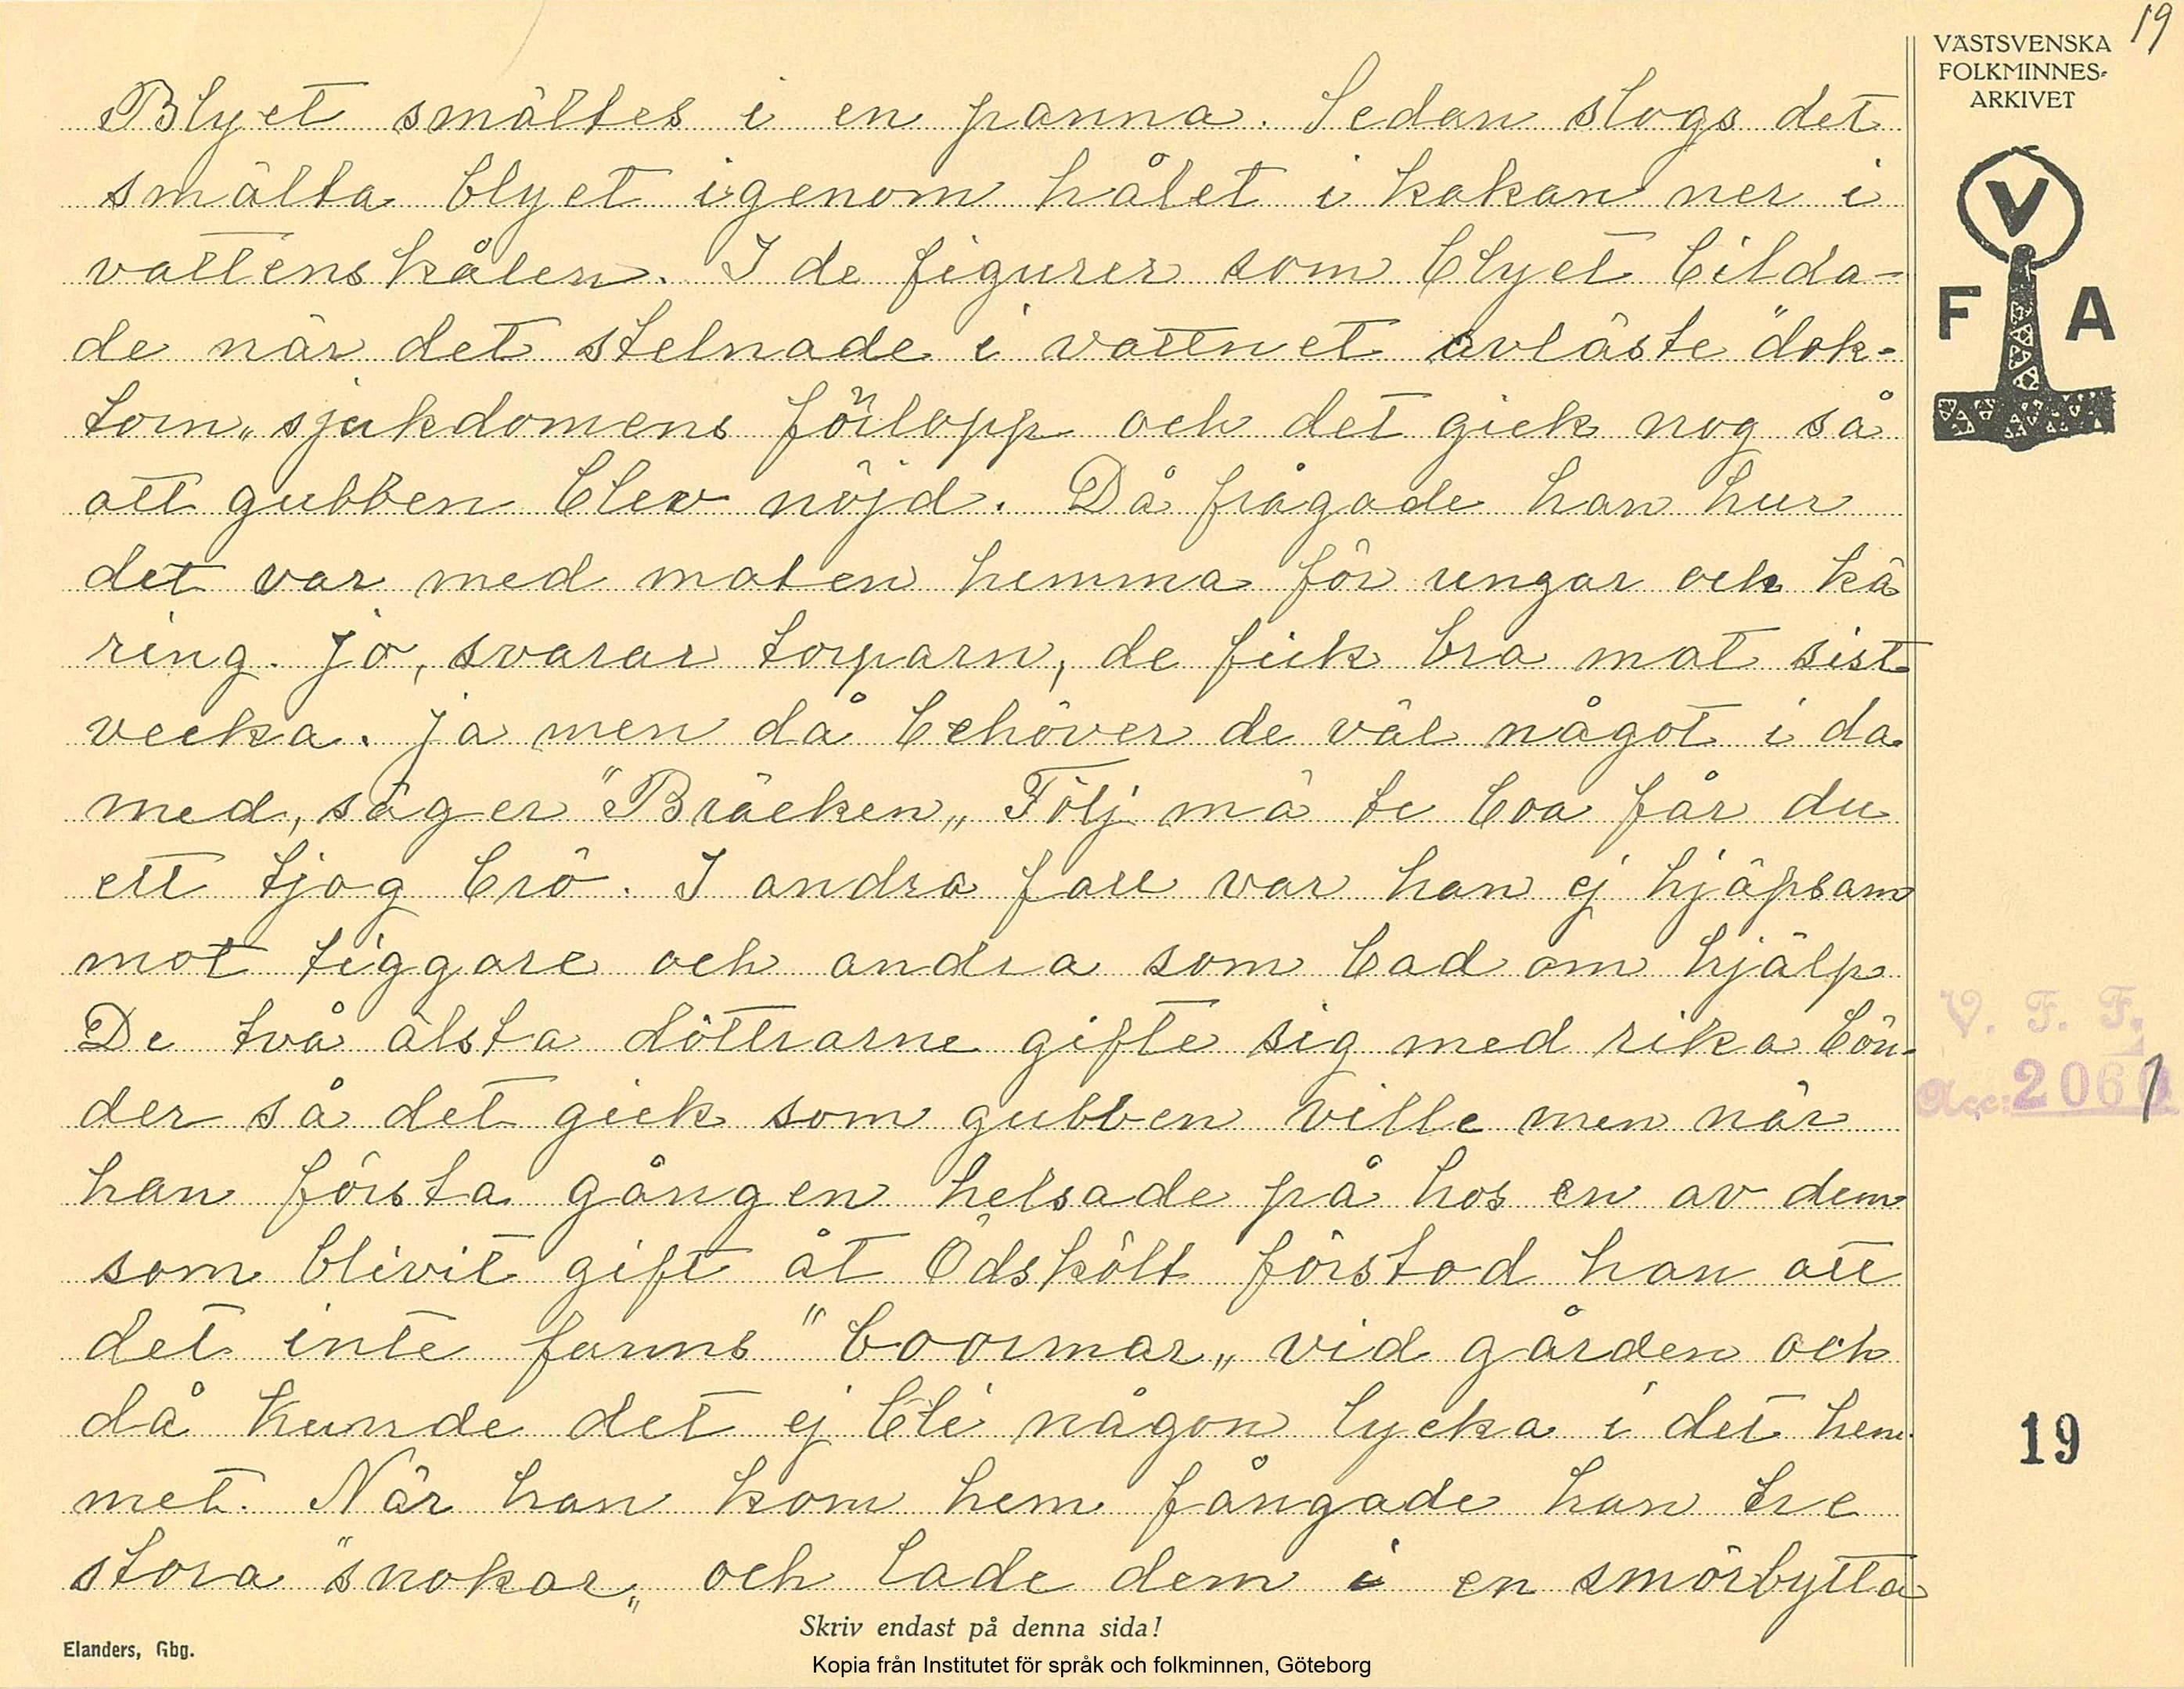 19
VÄSTSVENSKA
FOLKMINNES-
ARKIVET
V
F A
Blyet smältes i en panna. Sedan slogs det
smälta blyet igenom hålet i kakan ner i
vattenskålen. I de figurer som blyet bilda-
de när det stelnade i vattnet avläste "dok-
torn„ sjukdomens förlopp och det gick nog så
att gubben blev nöjd. Då frågade han hur
det var med maten hemma för ungar och kä
ring. Jo, svarar torparn, de fick bra mat sist
vecka. Ja men då behöver de väl något i da
med, säger "Bräcken„ Följ mä te boa får du
ett tjog brö. I andra fall var han ej hjäpsam
mot tiggare och andra som bad om hjälp
De två älsta döttrarne gifte sig med rika bön-
der så det gick som gubben ville men när
han första gången helsade på hos en av dem
som blivit gift åt Ödskölt förstod han att
det inte fanns "boormar„ vid gården och
då kunde det ej bli någon lycka i det hem-
met. När han kom hem fångade han tre
stora "snokar„ och lade dem i en smörbytta
V. F. F.
Acc: 2060
1
19
Skriv endast på denna sida!
Elanders, Gbg.
Kopia från Institutet för språk och folkminnen, Göteborg